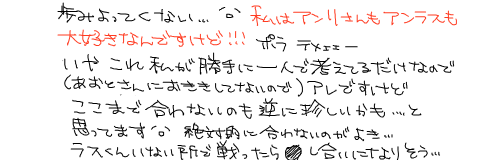 歩みよってくない…^o^ 私はアンリさんもアンラスも
大好きなんですけど!!! ポラ テメェェー
いや これ 私が勝手に一人で考えてるだけなので
(あおとさんにおききしてないので)アレですけど
ここまで合わないのも逆に珍しいかも…と
思ってます^o^ 絶対的に合わないのがよき…
ラスくんいない所で戦ったら●し合いになりそう…